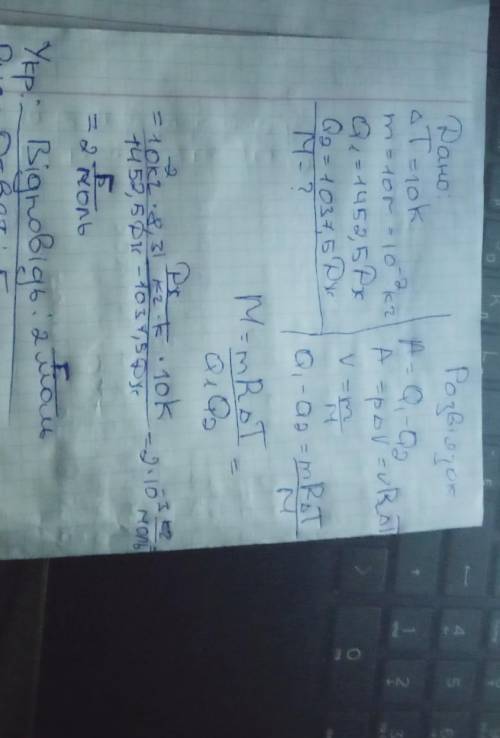 Дано:
ΔT = 10K
m = 10г = 10⁻² кг
Q₁ = 1452,5 Дж
Q₂ = 1037,5 Дж
M = ?
Розв'язок
A = Q₁ - Q₂
A = pΔV = νRΔT
ν = m/M
Q₁ - Q₂ = mRΔT/M
M = mRΔT/Q₁Q₂ =
= 10⁻²кг · 8,31 Дж/кг·К · 10K / 1452,5 Дж - 1037,5 Дж = 2·10⁻³ кг/моль
= 2 г/моль
Укр: Відповідь: 2 г/моль